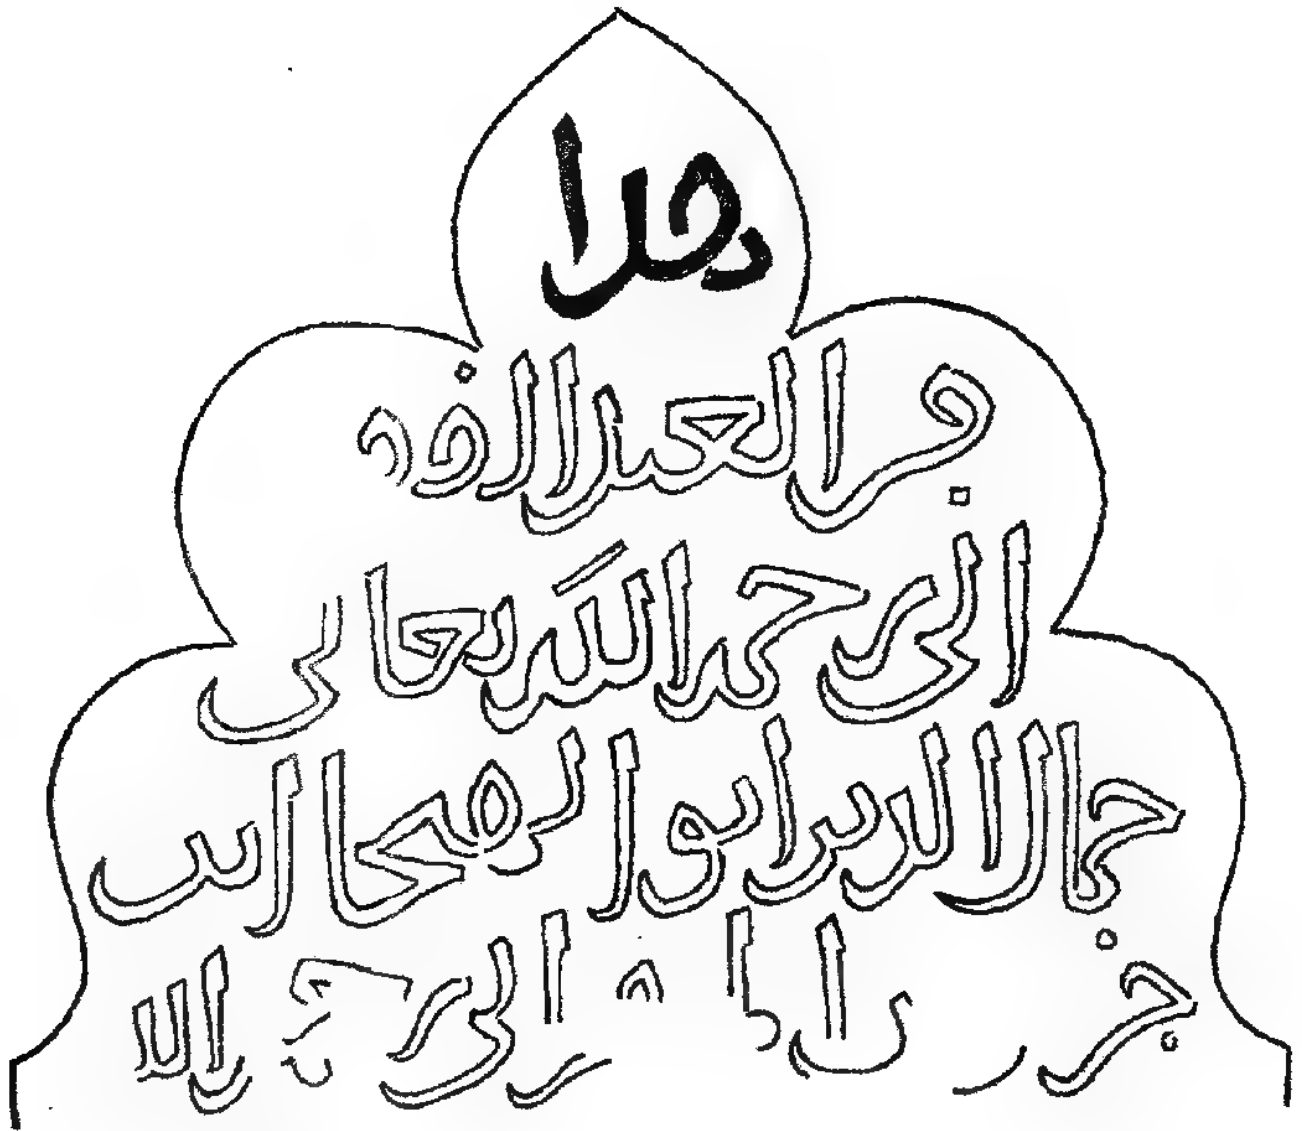 هذا
قبر العبد الفقير
الى رحمة الله تعالى
جمال الدين ابو المحاسن
الى رحمة الله